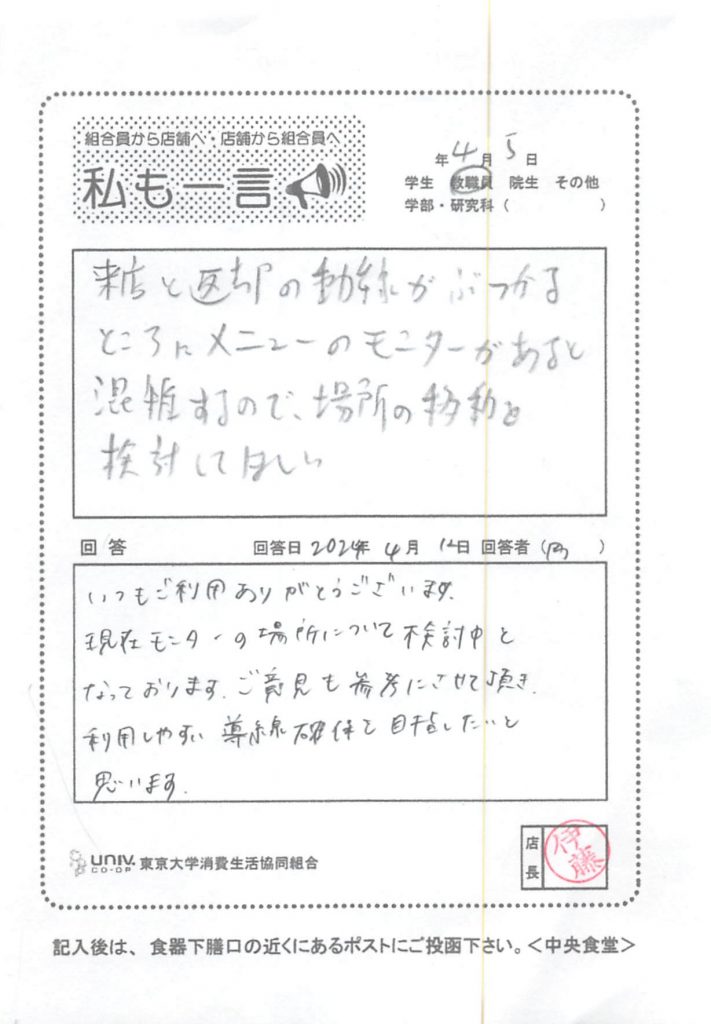 組合員から店舗へ・店舗から組合員へ
私も一言
年 4月 5日
学生 教職員 院生 その他
学部・研究科 ( )
来店と返却の動線がぶつかる
ところにメニューのモニターがあると
混雑するので、場所の移動を
検討してほしい
回答 回答日 2024年 4月 12日 回答者 ( )
いつもご利用ありがとうございます。
現在モニターの場所について検討中と
なっております。ご意見も参考にさせて頂き、
利用しやすい導線確保を目指したいと
思います。
UNIV. CO-OP 東京大学消費生活協同組合
店長 伊藤
記入後は、食器下膳口の近くにあるポストにご投函下さい。<中央食堂>